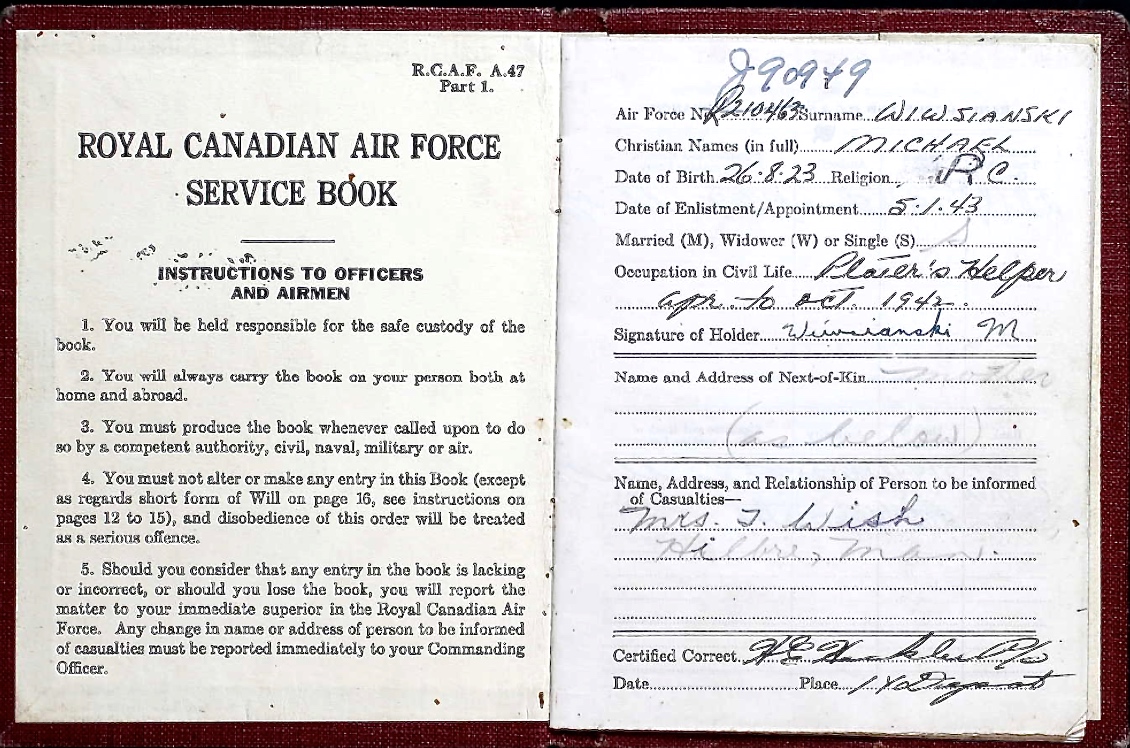 R.C.A.F. A.47
Part 1.
ROYAL CANADIAN AIR FORCE
SERVICE BOOK
INSTRUCTIONS TO OFFICERS
AND AIRMEN
1. You will be held responsible for the safe custody of the
book.
2. You will always carry the book on your person both at
home and abroad.
3. You must produce the book whenever called upon to do
so by a competent authority, civil, naval, military or air.
4. You must not alter or make any entry in this Book (except
as regards short form of Will on page 16, see instructions on
pages 12 to 15), and disobedience of this order will be treated
as a serious offence.
5. Should you consider that any entry in the book is lacking
or incorrect, or should you lose the book, you will report the
matter to your immediate superior in the Royal Canadian Air
Force. Any change in name or address of person to be informed
of casualties must be reported immediately to your Commanding
Officer.
J90949
Air Force No. R210463 Surname WIWSIANSKI
Christian Names (in full) MICHAEL
Date of Birth 26.8.23 Religion R.C.
Date of Enlistment/Appointment 5.1.43
Married (M), Widower (W) or Single (S) S
Occupation in Civil Life Plater's Helper
Apr. to Oct. 1942.
Signature of Holder Wiwsianski M
Name and Address of Next-of-Kin mother
(as below)
Name, Address, and Relationship of Person to be informed
of Casualties—
Mrs. T. Wish
Hilbre, Man.
Certified Correct
Date Place